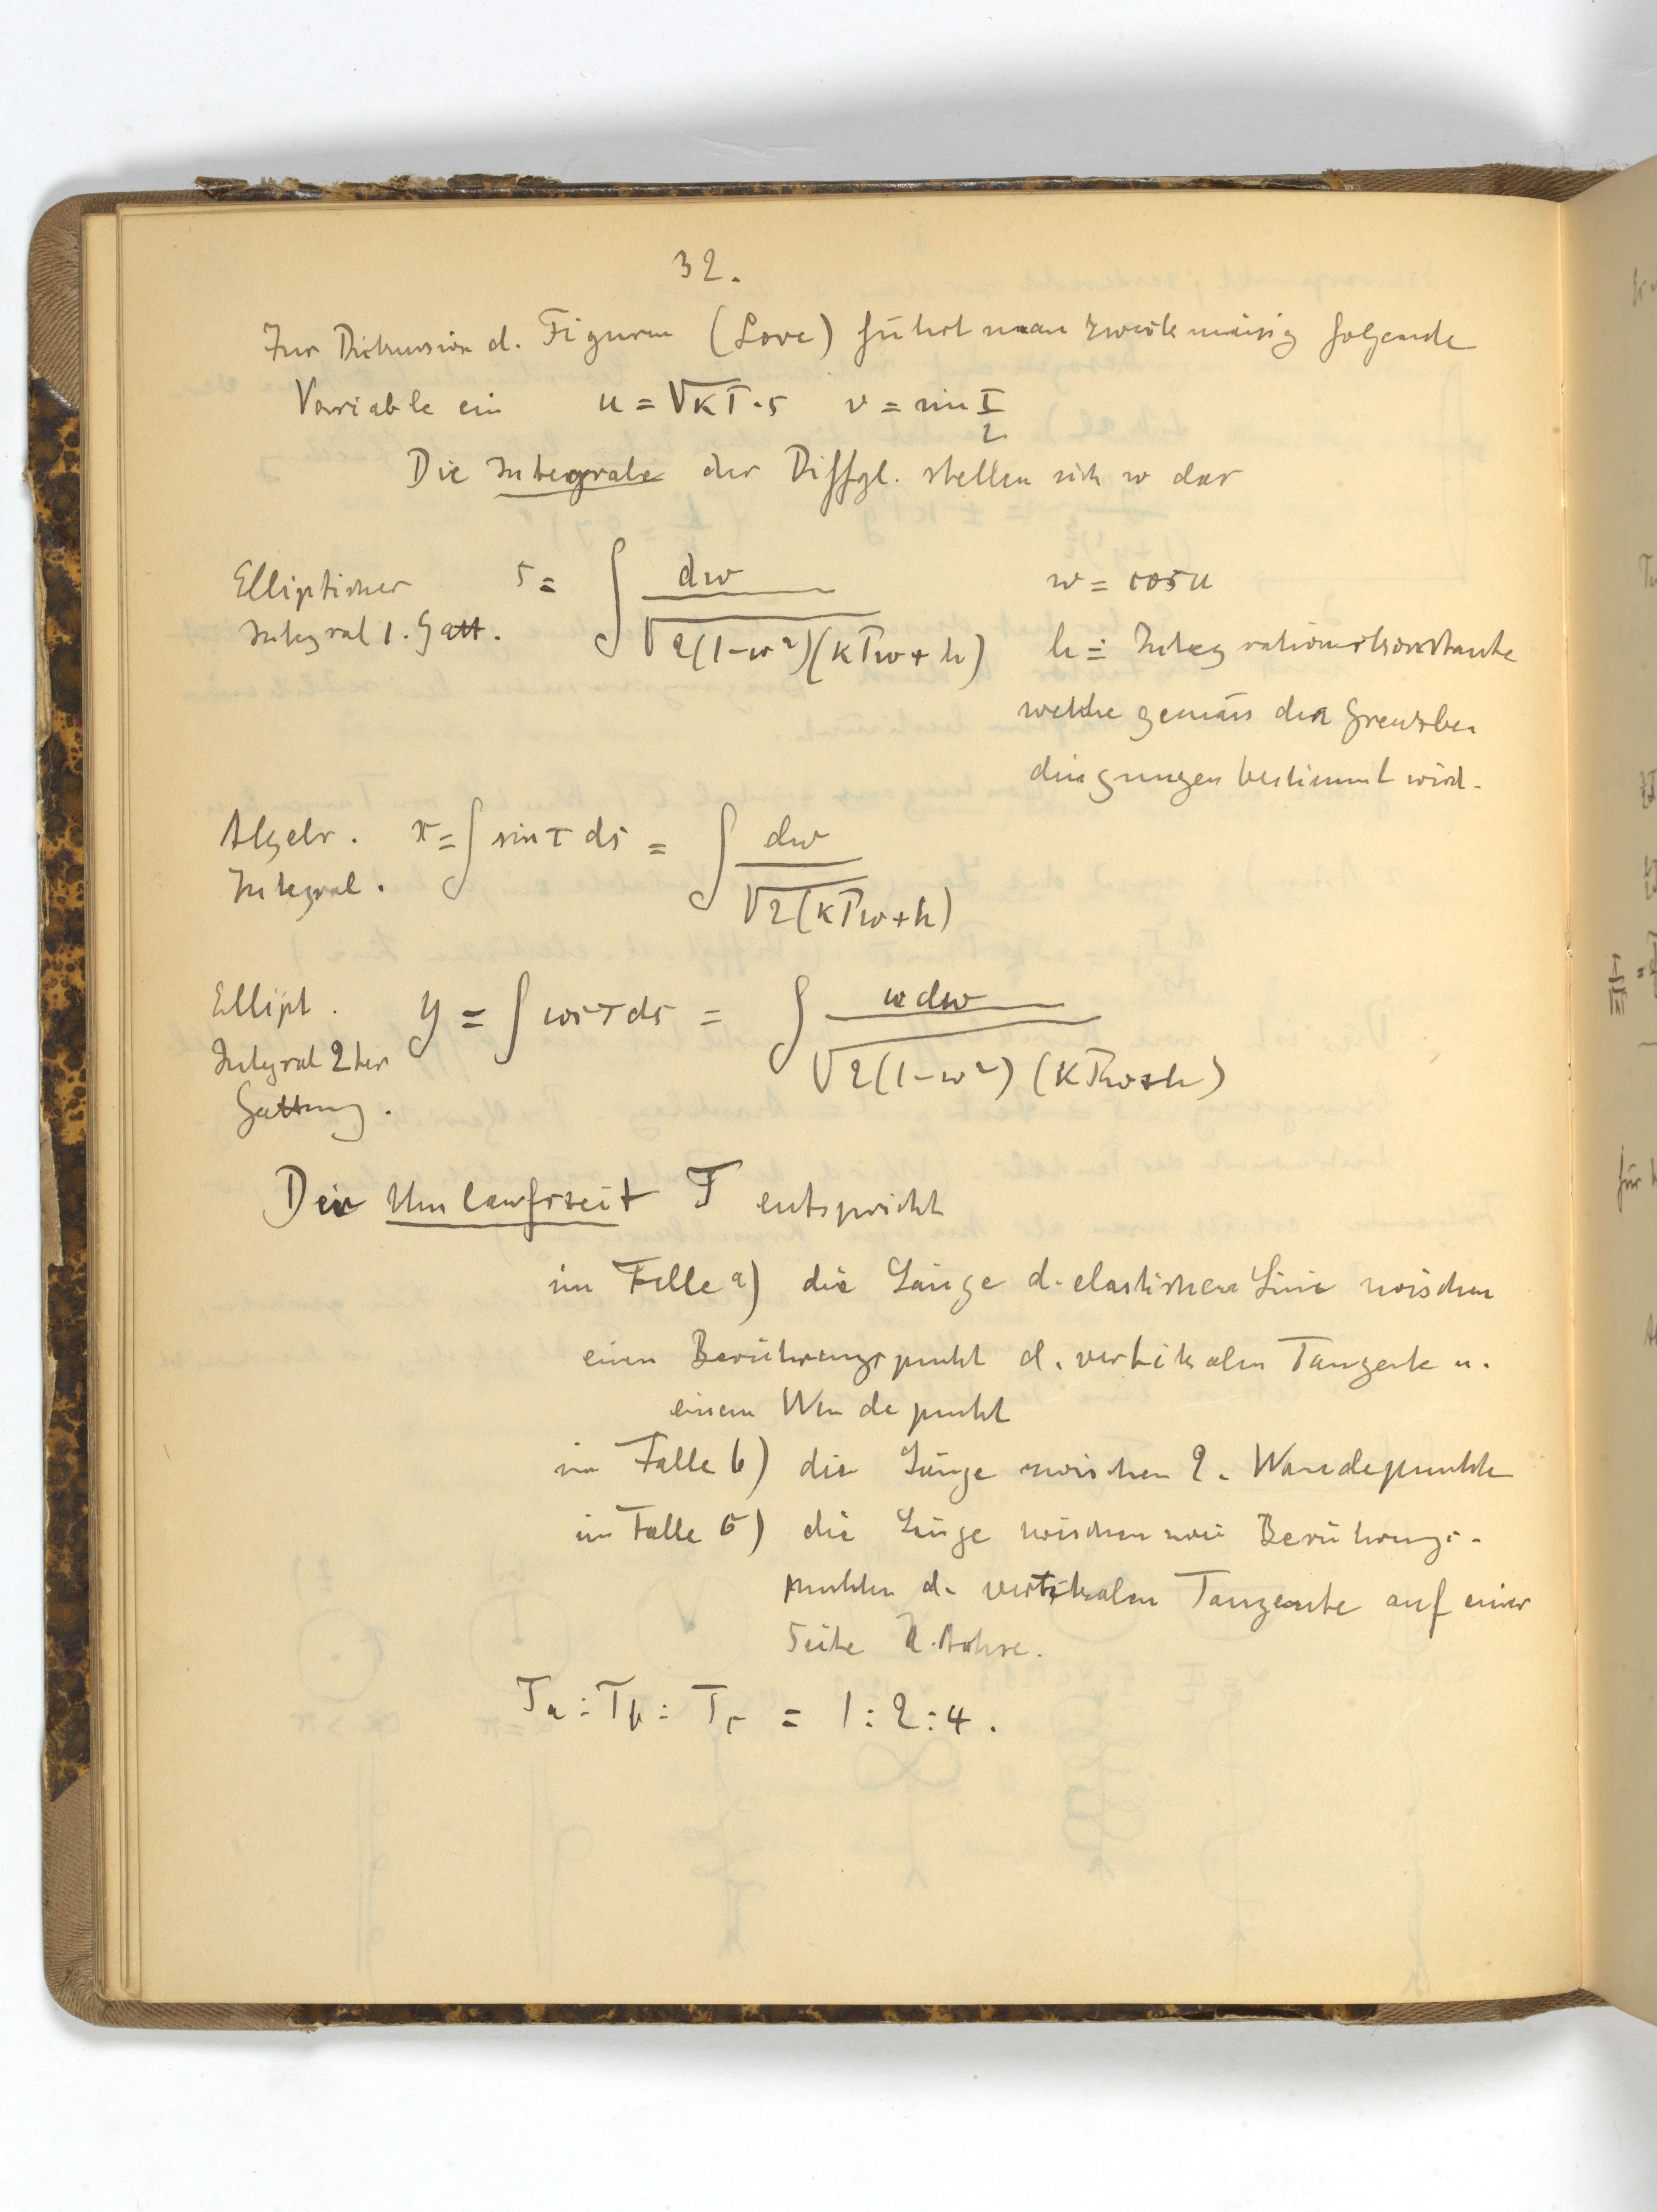 32.
Zur Diskussion d. Figuren (Love) führt man zweckmässig folgende
Variable ein u = √KT · s v = sin τ/2
Die Integrale der Diffgl. stellen sich so dar
Elliptisches Integral 1. Gatt. s = ∫ dw / √2(1-w²)(KTw + h) w = cos u
h = Integrationskonstante
welche gemäss den Grenzbe
dingungen bestimmt wird.
Algebr. Integral. x = ∫ sin τ ds = ∫ dw / √2(KTw + h)
Ellipt. Integral 2ter Gattung. y = ∫ cos τ ds = ∫ w dw / √2(1-w²)(KTw+h)
Der Umlaufszeit T entspricht
im Falle a) die Länge d. elastischen Linie zwischen
einem Berührungspunkt d. vertikalen Tangente u.
einem Wendepunkt
im Falle b) die Länge zwischen 2. Wendepunkte
im Falle c) die Länge zwischen zwei Berührungs-
punkten d. vertikalen Tangente auf einer
Seite d. Achse.
Ta : Tb : Tc = 1 : 2 : 4.